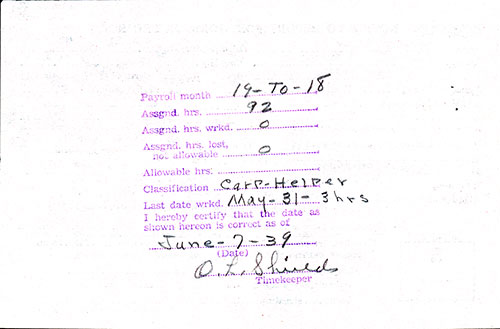 Payroll month 19-To-18
Assgnd. hrs. 92
Assgnd. hrs. wrkd. 0
Assgnd. hrs. lost,
not allowable 0
Allowable hrs:
Classification Carp-Helper
Last date wrkd. May-31-3hrs
I hereby certify that the date as
shown hereon is correct as of
June-7-39
(Date)
O.L. Shields
Timekeeper